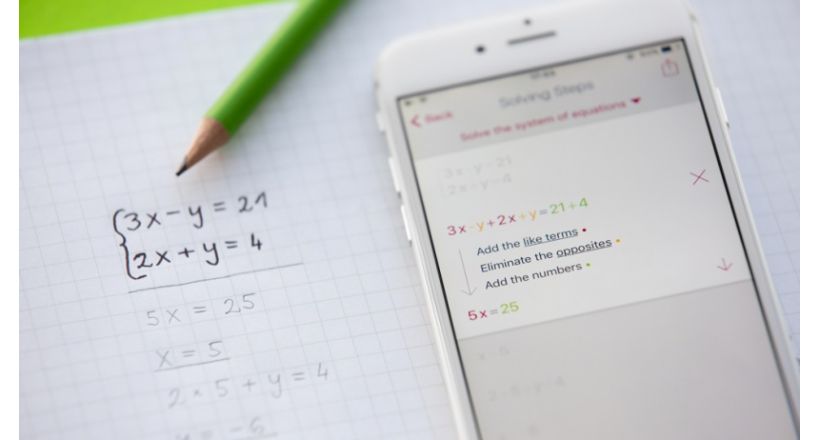 3x - y = 21
2x + y = 4
5x = 25
x = 5
2 · 5 + y = 4
y = -6
Back
Solving Steps
Solve the system of equations
3x - y = 21
2x + y = 4
3x - y + 2x + y = 21 + 4
Add the like terms
Eliminate the opposites
Add the numbers
5x = 25
x = 5
2 · 5 + y = 4